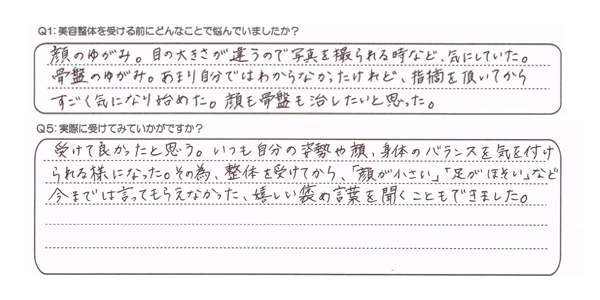 Q1：美容整体を受ける前にどんなことで悩んでいましたか？
顔のゆがみ。目の大きさが違うので写真を撮られる時など、気にしていた。
骨盤のゆがみ。あまり自分ではわからなかったけれど、指摘を頂いてから
すごく気になり始めた。顔も骨盤も治したいと思った。
Q5：実際に受けてみていかがですか？
受けて良かったと思う。いつも自分の姿勢や顔、身体のバランスを気を付け
られる様になった。その為、整体を受けてから、「顔が小さい」「足がほそい」など
今までは言ってもらえなかった、嬉しい褒め言葉を聞くこともできました。